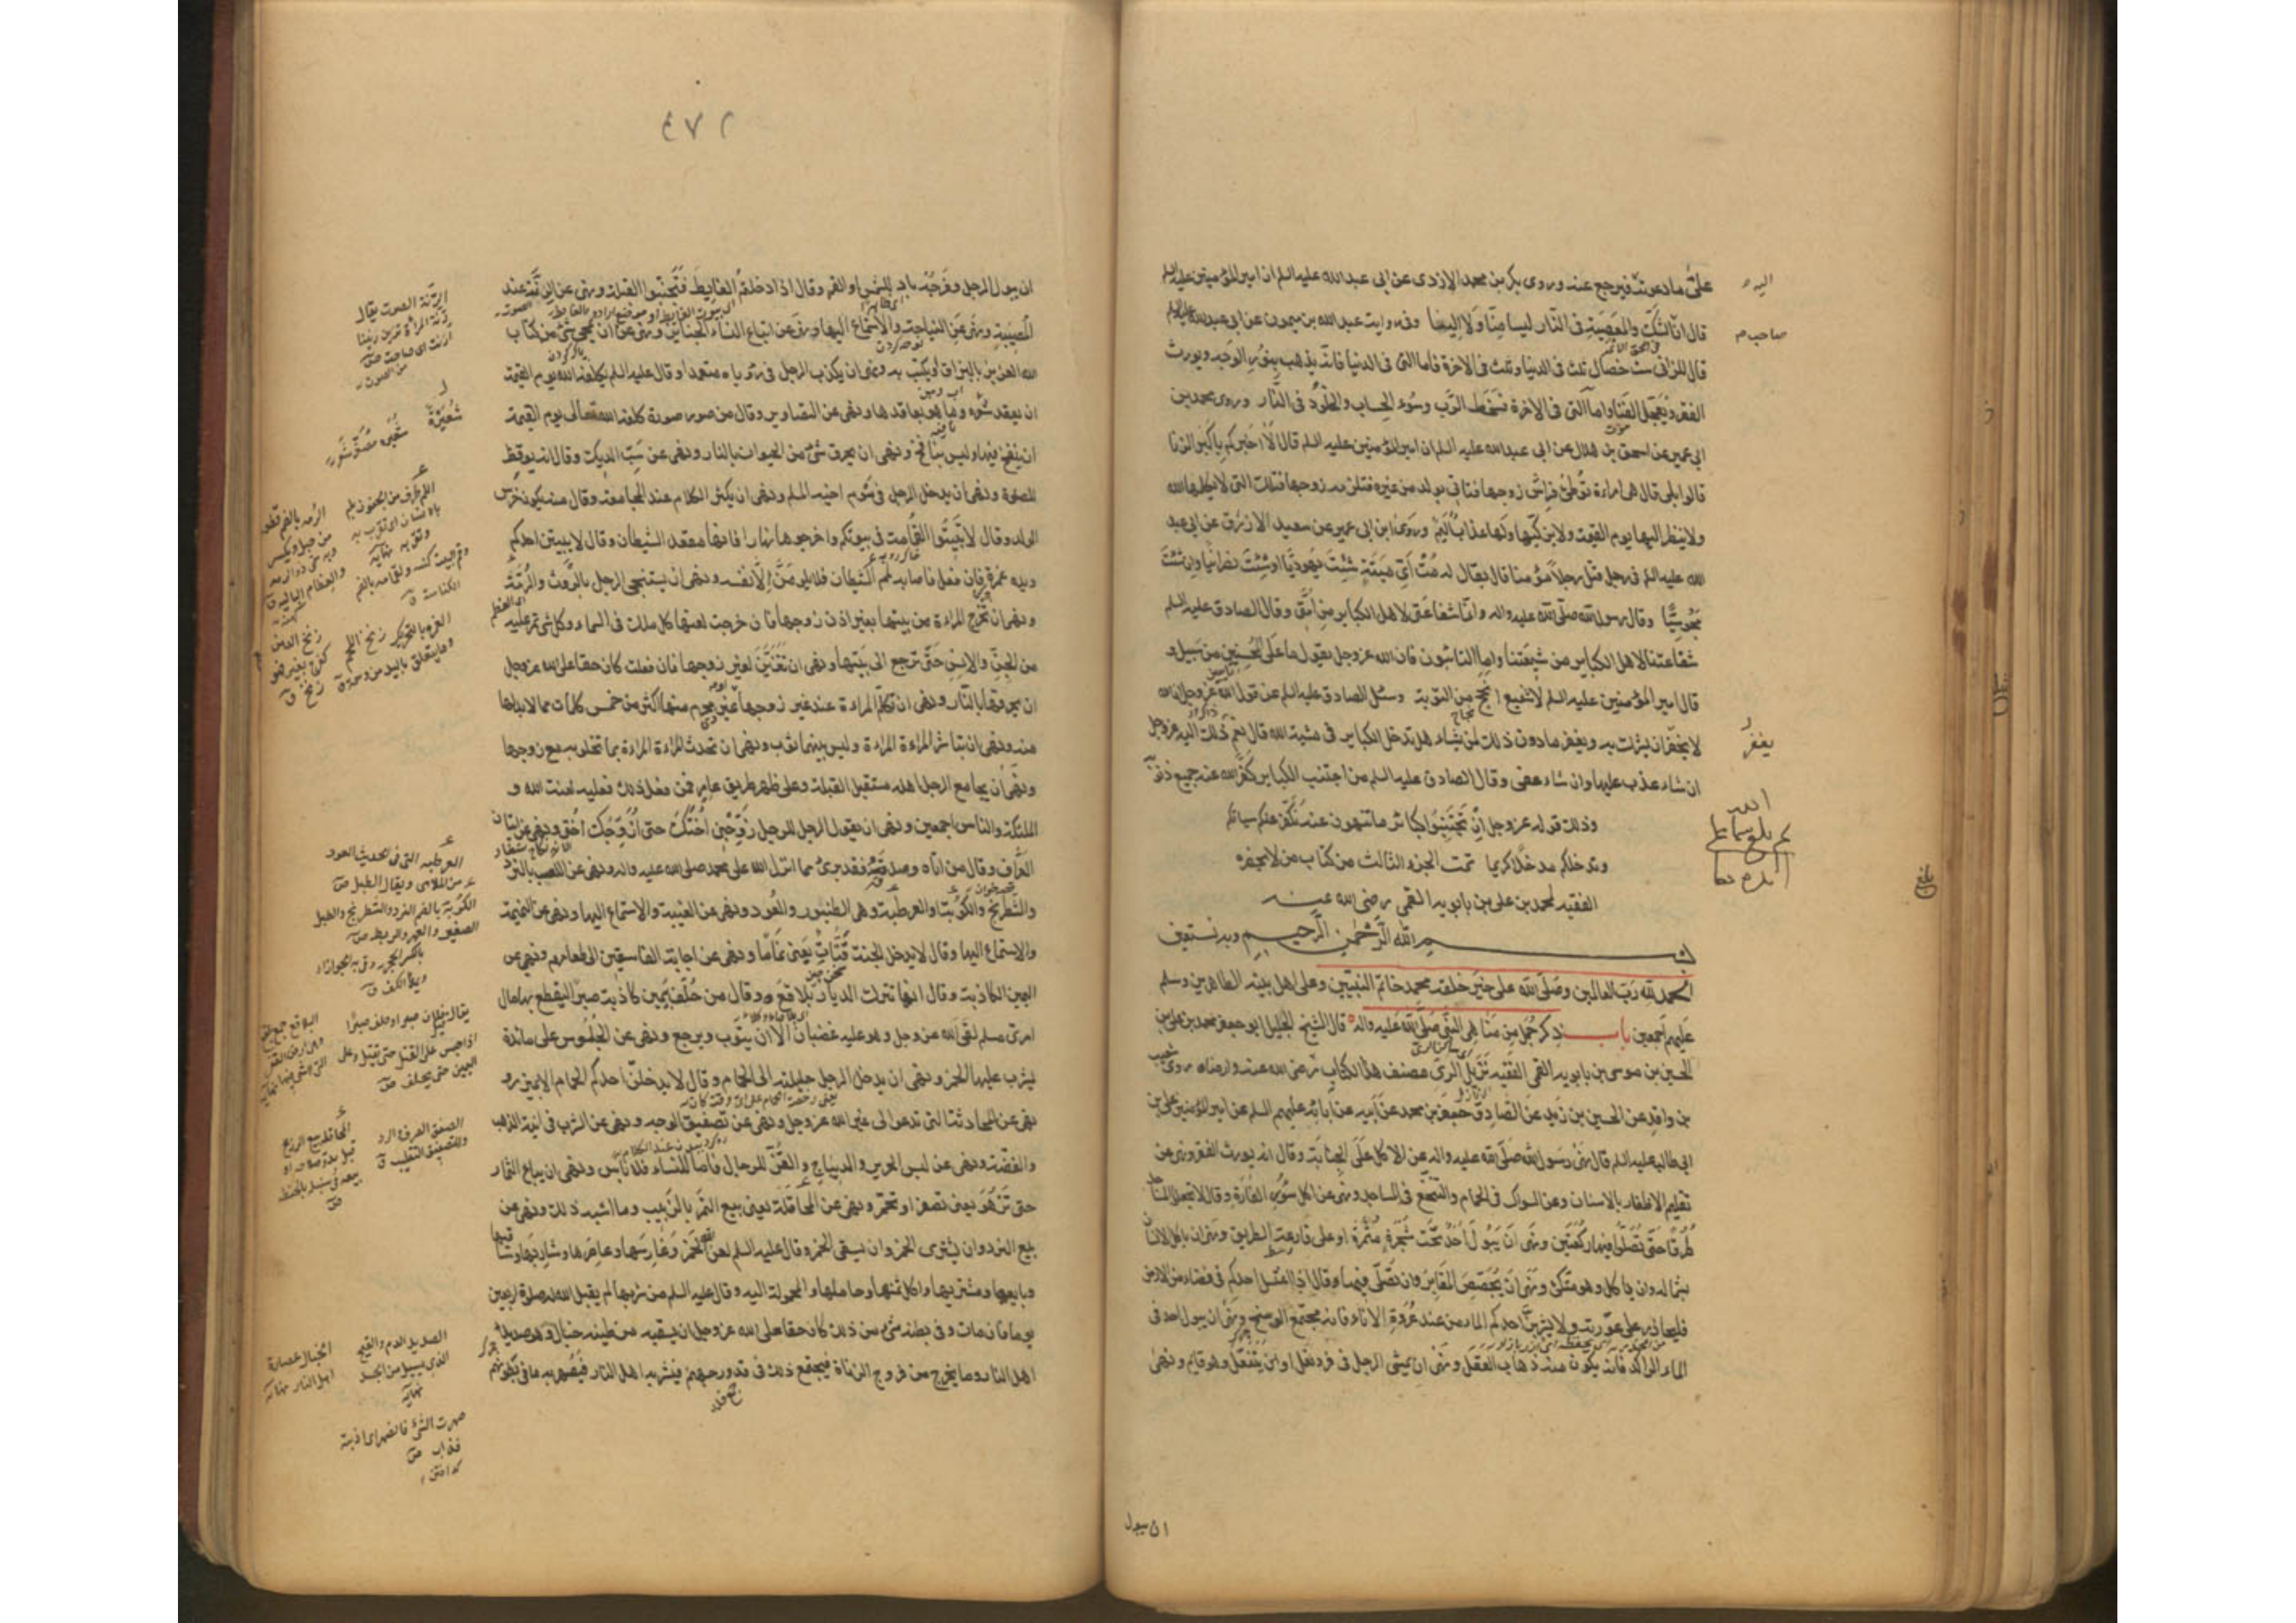 على ما دعوته فيرجع عنه وروى بكر بن محمد الازدى عن ابى عبد الله عليه السلم ان امير المؤمنين عليه السلم
قال ان الشك والمعصية فى النار ليسا منا ولا الينا وفى رواية عبد الله بن ميمون عن ابى عبد الله عليه السلم
قال للزانى ست خصال ثلث فى الدنيا وثلث فى الاخرة فاما التى فى الدنيا فانه يذهب بنور الوجه ويورث
الفقر ويعجل الفناء واما التى فى الاخرة فسخط الرب وسوء الحساب والخلود فى النار وروى محمد بن
ابى عمير عن اسحق بن هلال عن ابى عبد الله عليه السلم ان امير المؤمنين عليه السلم قال الا اخبركم باكبر الزنا
قالوا بلى قال هى امراءة توطئ فراش زوجها فتاتى بولد من غيره فتلزمه زوجها فتلك التى لا يكلمها الله
ولا ينظر اليها يوم القيمة ولا يزكيها ولها عذاب اليم وروى ابن ابى عمير عن سعيد الازرق عن ابى عبد
الله عليه السلم فى رجل قتل رجلا مؤمنا قال يقال له مت اى ميتة شئت يهوديا او شئت نصرانيا وان شئت
مجوسيا وقال رسول الله صلى الله عليه واله وانما شفاعتى لاهل الكباير من امتى وقال الصادق عليه السلم
شفاعتنا لاهل الكباير من شيعتنا واما التائبون فان الله عز وجل يقول ما على المحسنين من سبيل و
قال امير المؤمنين عليه السلم لا شفيع انجح من التوبة وسئل الصادق عليه السلم عن قول الله عز وجل ان الله
لا يغفر ان يشرك به ويغفر ما دون ذلك لمن يشاء هل تدخل الكباير فى مشية الله قال نعم ذلك اليه عز وجل
ان شاء عذب عليها وان شاء عفى وقال الصادق عليه السلم من اجتنب الكباير كفر الله عنه جميع ذنوبه
وذلك قوله عز وجل ان تجتنبوا كبائر ما تنهون عنه نكفر عنكم سياتكم
وندخلكم مدخلا كريما تمت الجزو الثالث من كتاب من لا يحضره
الفقيه لمحمد بن على بن بابويه القمى رضى الله عنه
بسم الله الرحمن الرحيم وبه نستعين
الحمد لله رب العالمين وصلى الله على خير خلقه محمد خاتم النبيين وعلى اهل بيته الطاهرين وسلم
عليهم اجمعين باب ذكر جمل من مناهى النبى صلى الله عليه واله قال الشيخ الجليل ابو جعفر محمد بن على بن
الحسين بن موسى بن بابويه القمى الفقيه نزيل الرى مصنف هذا الكتاب رضى الله عنه وارضاه روى شعيب
بن واقد عن الحسين بن زيد عن الصادق جعفر بن محمد عن ابيه عن ابائه عليهم السلم عن امير المؤمنين على بن
ابى طالب عليه السلم قال نهى رسول الله صلى الله عليه واله عن الاكل على الجنابة وقال انه يورث الفقر ونهى عن
تقليم الاظفار بالاسنان وعن السواك فى الحمام والتنخع فى المساجد ونهى عن اكل سؤر الفارة وقال لا تجعلوا المساجد
طرقا حتى تصلوا فيها ركعتين ونهى ان يبول احد تحت شجرة مثمرة او على قارعة الطريق ونهى ان ياكل الانسان
بشماله وان ياكل وهو متكئ ونهى ان يجصص المقابر وان تصلى فيها وقال اذا اغتسل احدكم فى فضاء من الارض
فليحاذر على عورته ولا يشربن احدكم الماء من عند عروة الاناء فانه مجتمع الوسخ ونهى ان يبول احد فى
الماء الراكد فانه يكون منه ذهاب العقل ونهى ان يمشى الرجل فى فرد نعل او ان يتنعل وهو قايم ونهى
يغفر
بلغ
ان يبول
٤٧٢
ان يبول الرجل وفرجه باد للشمس او القمر وقال اذا دخلتم الغايط فتجنبوا القبلة ونهى عن الرنة عند
المصيبة ونهى عن النياحة والاستماع اليها ونهى عن اتباع النساء الجنايز ونهى عن ان يمحى شئ من كتاب
الله العزيز بالبزاق او يكتب به ونهى ان يكذب الرجل فى رؤياه متعمدا وقال عليه السلم يكلفه الله يوم القيمة
ان يعقد شعيرة وما هو بعاقدها ونهى عن التصاوير وقال من صور صورة كلفه الله تعالى يوم القيمة
ان ينفخ فيها وليس بنافخ ونهى ان يحرق شئ من الحيوان بالنار ونهى عن سب الديك وقال انه يوقظ
للصلوة ونهى ان يدخل الرجل فى سوم اخيه المسلم ونهى ان يكثر الكلام عند المجامعة وقال منه يكون خرس
الولد وقال لا تبيتوا القمامة فى بيوتكم واخرجوها نهارا فانها مقعد الشيطان وقال لا يبيتن احدكم
ويده غمرة فان فعل فاصابه لمم الشيطان فلا يلومن الا نفسه ونهى ان يستنجى الرجل بالروث والرمة
ونهى ان تخرج المراءة من بيتها بغير اذن زوجها فان خرجت لعنها كل ملك فى السماء وكل شئ تمر عليه
من الجن والانس حتى ترجع الى بيتها ونهى ان تتزين لغير زوجها فان فعلت كان حقا على الله عز وجل
ان يحرقها بالنار ونهى ان تتكلم المراءة عند غير زوجها وغير ذى محرم منها اكثر من خمس كلمات مما لا بد لها
منه ونهى ان تباشر المراءة المراءة وليس بينهما ثوب ونهى ان تحدث المراءة المراءة بما تخلو به مع زوجها
ونهى ان يجامع الرجل اهله مستقبل القبلة وعلى ظهر طريق عامر فمن فعل ذلك فعليه لعنة الله و
الملئكة والناس اجمعين ونهى ان يقول الرجل للرجل زوجنى اختك حتى ازوجك اختى ونهى عن اتيان
العراف وقال من اتاه وصدقه فقد برئ مما انزل الله على محمد صلى الله عليه واله ونهى عن اللعب بالنرد
والشطرنج والكوبة والعرطبة وهى الطنبور والعود ونهى عن الغيبة والاستماع اليها ونهى عن النميمة
والاستماع اليها وقال لا يدخل الجنة قتات يعنى نماما ونهى عن اجابة الفاسقين الى طعامهم ونهى عن
اليمين الكاذبة وقال انها تترك الديار بلاقع وقال من حلف بيمين كاذبة صبرا ليقطع بها مال
امرئ مسلم لقى الله عز وجل وهو عليه غضبان الا ان يتوب ويرجع ونهى عن الجلوس على مائدة
يشرب عليها الخمر ونهى ان يدخل الرجل حليلته الى الحمام وقال لا يدخلن احدكم الحمام الا بميزر و
نهى عن المحادثة التى تدعو الى غير الله عز وجل ونهى عن تصفيق الوجه ونهى عن الشرب فى انية الذهب
والفضة ونهى عن لبس الحرير والديباج والقز للرجال فاما للنساء فلا باس ونهى ان يباع الثمار
حتى تزهو يعنى تصفر او تحمر ونهى عن المحاقلة يعنى بيع التمر بالزبيب وما اشبه ذلك ونهى عن
بيع النرد وان يشترى الخمر وان يسقى الخمر وقال عليه السلم لعن الله الخمر وغارسها وعاصرها وشاربها وساقيها
وبايعها ومشتريها واكل ثمنها وحاملها والمحمولة اليه وقال عليه السلم من شربها لم يقبل الله له صلوة اربعين
يوما فان مات وفى بطنه شئ من ذلك كان حقا على الله عز وجل ان يسقيه من طينة خبال وهو صديد
اهل النار وما يخرج من فروج الزناة فيجتمع ذلك فى قدور جهنم فيشربه اهل النار فيصهر به ما فى بطونهم
الرنة الصوت يقال
شعيرة
العرطبة التى فى الحديث العود
من الملاهى ويقال الطبل
الصديد الدم والقيح
الذى يسيل من الجسد
الخبال عصارة
اهل النار نهاية